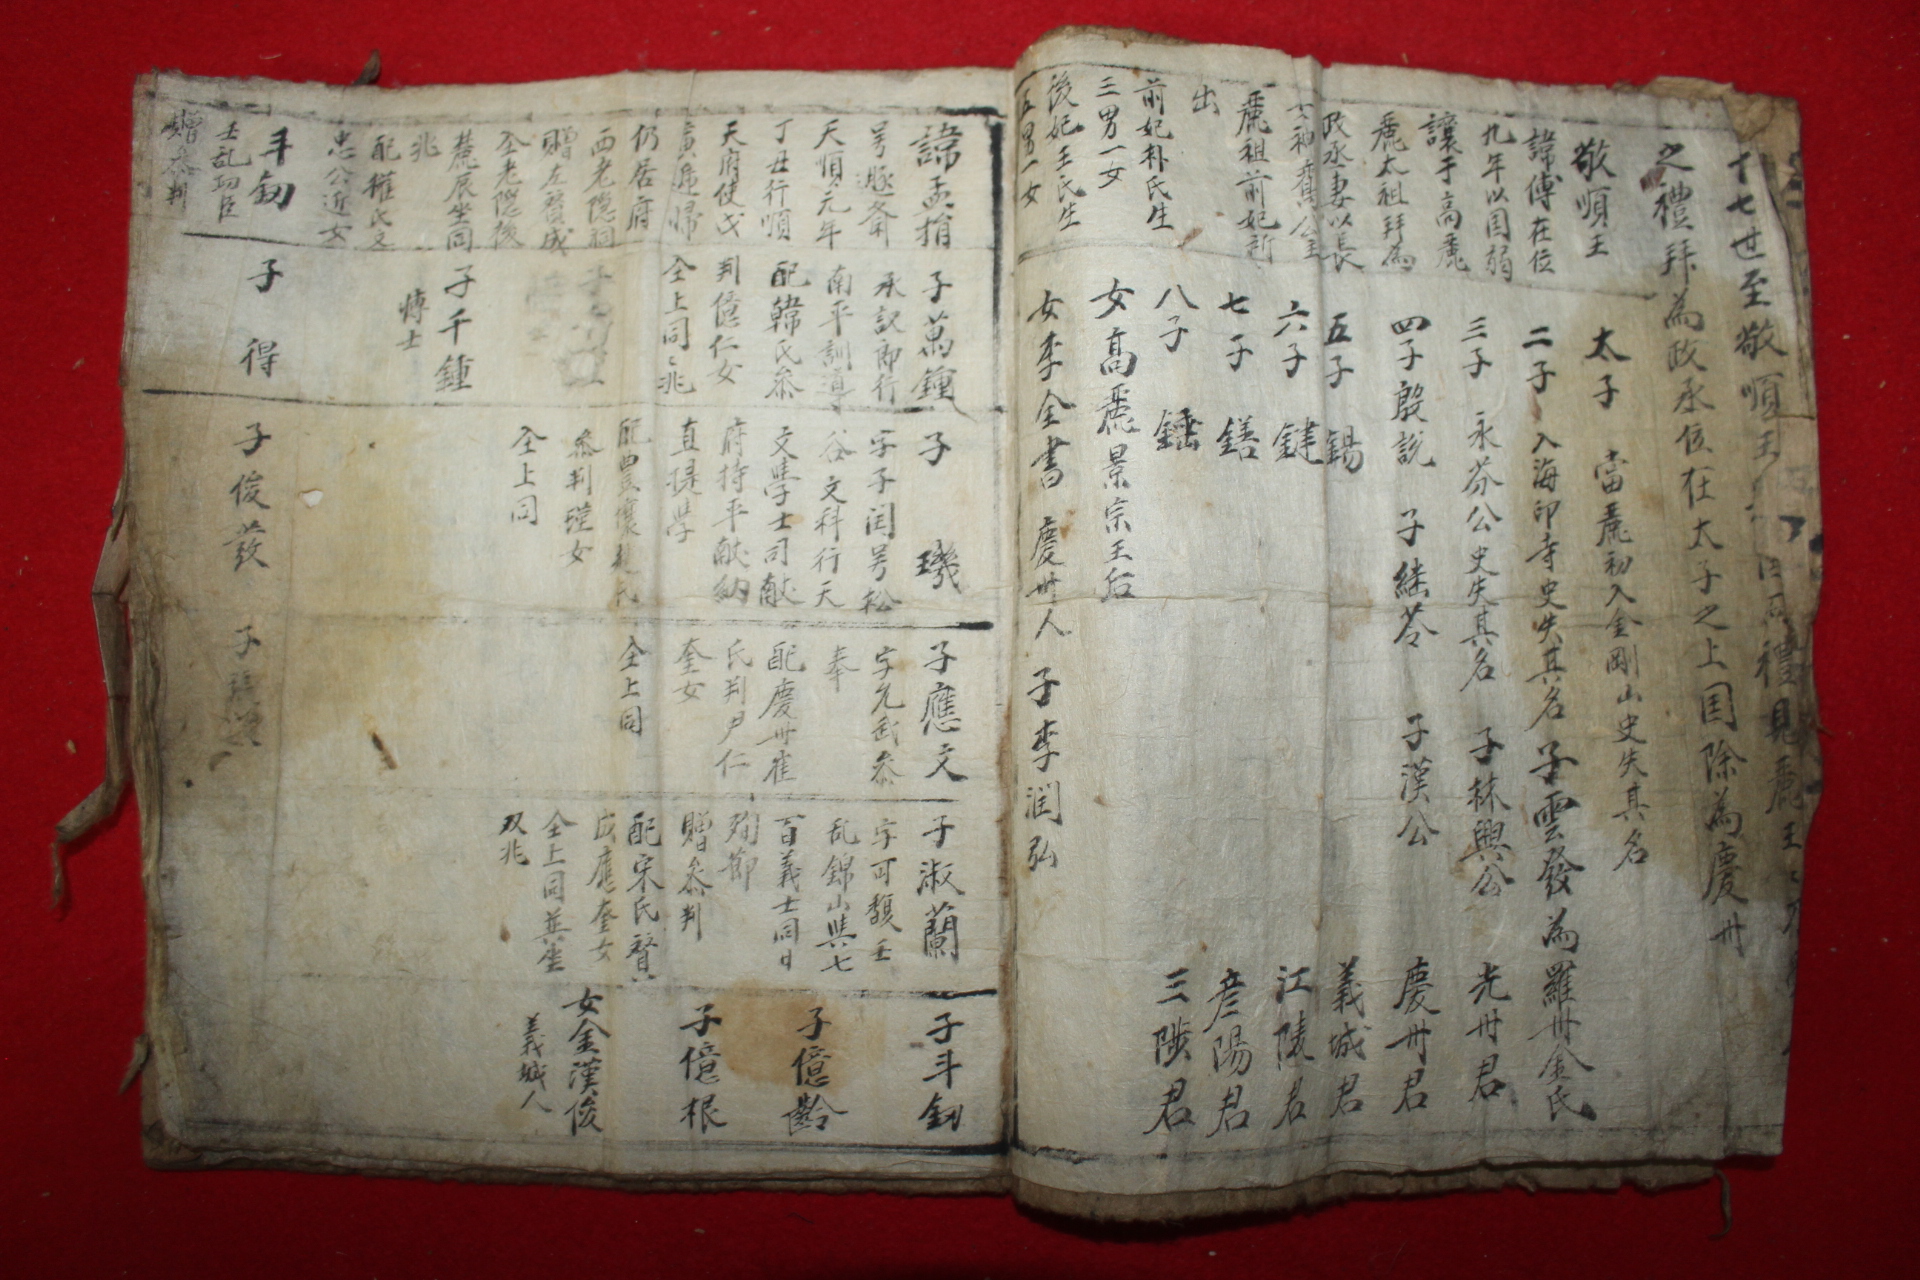 十七世至敬順王
禮見麗王
之禮拜為政丞位在太子之上国除為慶州
敬順王
諱傅在位
九年以国弱
讓于高麗
麗太祖拜為
政丞妻以長
女神鸞公主
麗祖前妃所
出
前妃朴氏生
三男一女
後妃王氏生
五男一女
太子 當麗初入金剛山史失其名
二子 入海印寺史失其名 子雲發 為羅州金氏
三子 永芬公史失其名 子林興公 光州君
四子殷說 子継苓 子漢公 慶州君
五子 錫 義城君
六子 鍵 江陵君
七子 鐥 彦陽君
八子 錘 三陟君
女高麗景宗王后
女李全書 慶州人 子李潤弘
諱孟
号
天順元年
丁丑行順
天府使戊
寅遞歸
仍居府
西老隱洞
贈左贊成
仝老隱後
麓辰坐同
兆
配權氏父
忠公近女
子萬鍾
承訓郎行
南平訓導
配韓氏參
判億仁女
仝上同兆
子千鍾
博士
子 璣
字子闰号松
谷文科行天
文學士司献
府持平献納
直提學
配豊壤趙氏
參判瑾女
仝上同
子應文
字允武參
奉
配慶州崔
氏判尹仁
奎女
仝上同
子淑蘭
字可馥壬
乱錦山與七
百義士同日
殉節
贈參判
配宋氏贊
成應奎女
仝上同并坐
双兆
子斗釰
子億齡
子億根
女金漢俊
義城人
斗釰
壬乱功臣
贈參判
子 得
子俊發